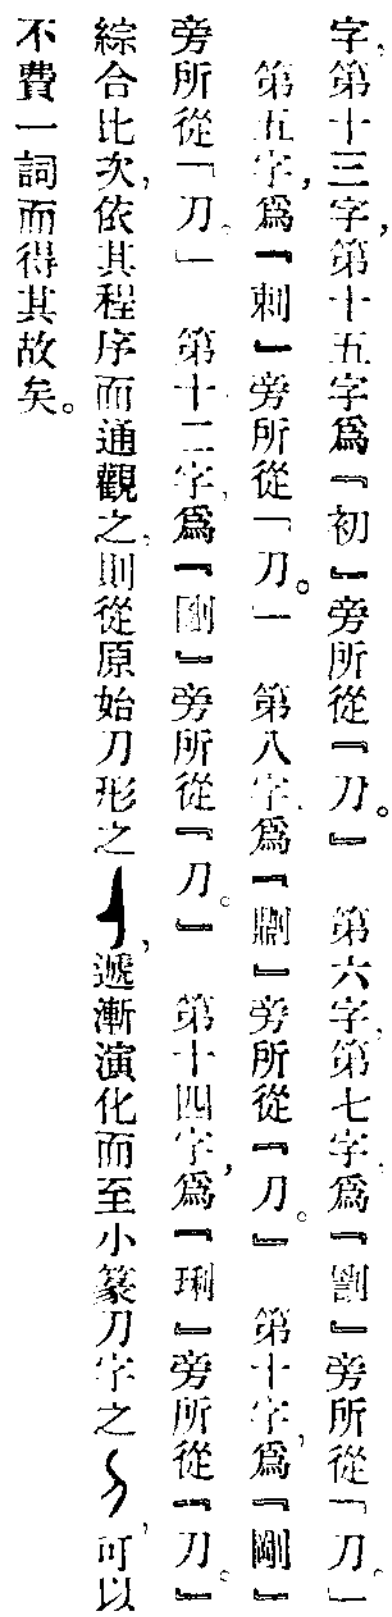 字,第十三字,第十五字爲『初』旁所從『刀。』　第六字,第七字,爲『劉』旁所從「刀。」
第五字,爲『刺』旁所從「刀。」　第八字,爲『劘』旁所從『刀。』　第十字,爲『剛』
旁所從「刀。」　第十二字,爲『剛』旁所從『刀。』　第十四字,爲『琍』旁所從『刀。』
綜合比次,依其程序而通觀之,則從原始刀形之,遞漸演化而至小篆刀字之,可以
不費一詞而得其故矣。